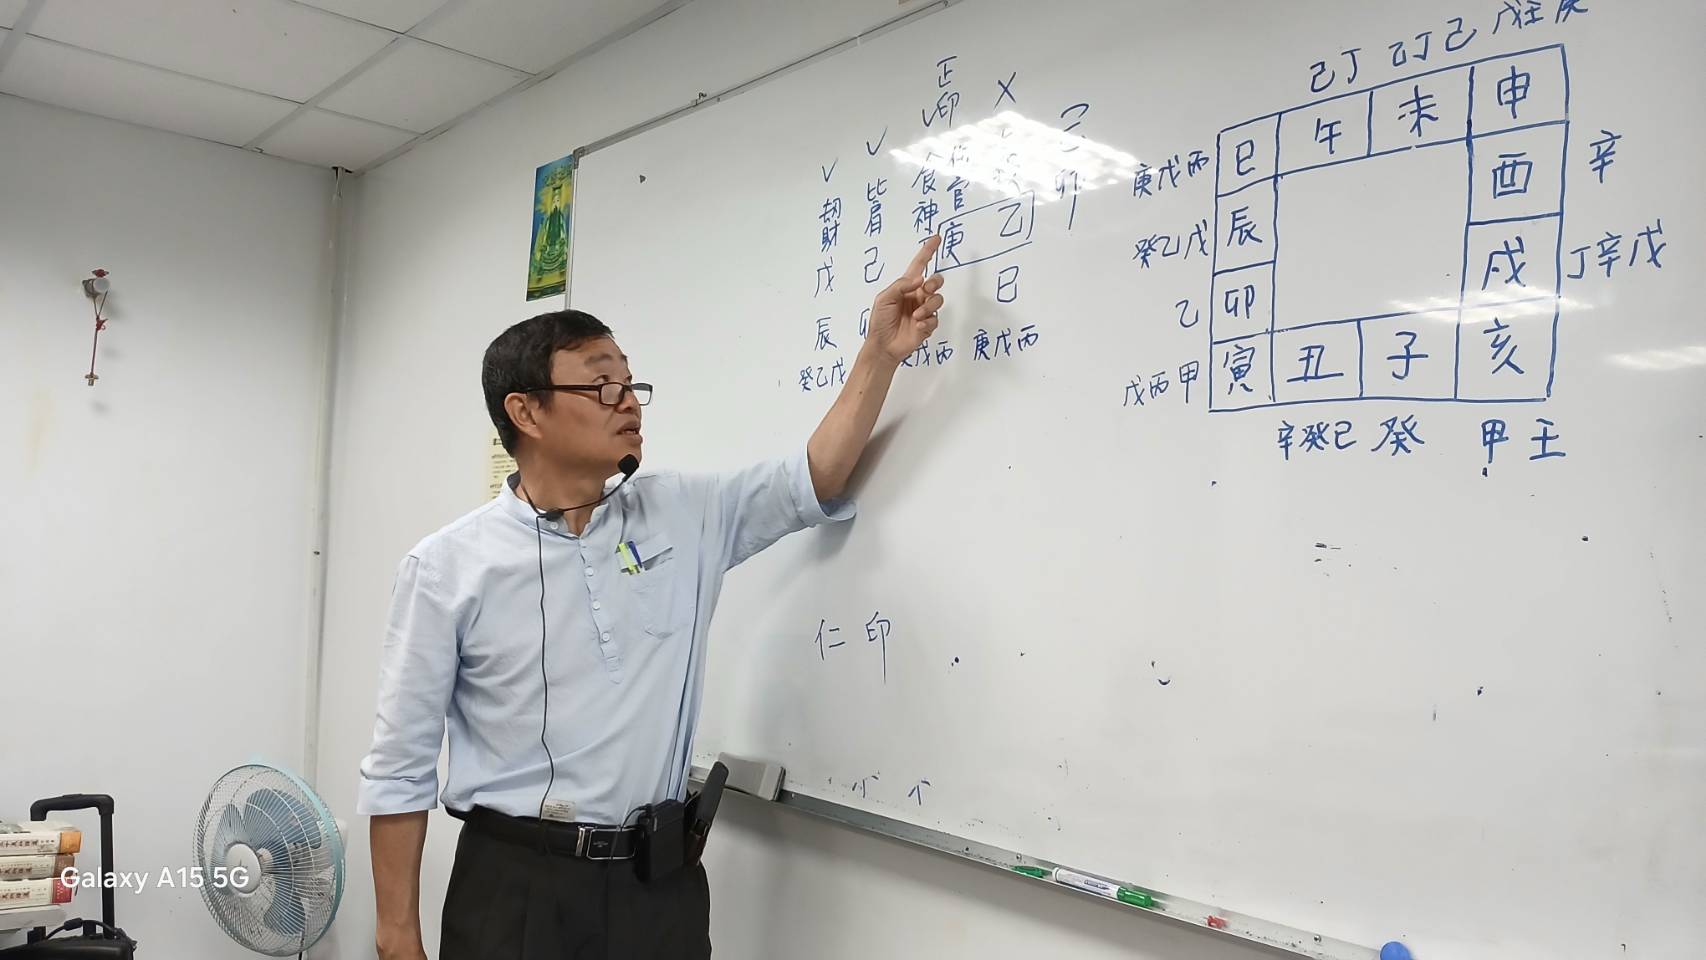 正印 X 己卯
V V V
劫財 比肩 食神 官
戊 己 庚 乙
辰 卯 巳
癸乙戊 戊丙 庚戊丙
仁 印
小 个
己丁 乙丁己 戊壬庚
巳 午 未 申
庚戊丙
酉 辛
辰 癸乙戊
戌 丁辛戊
卯 乙
寅 丑 子 亥
戊丙甲
辛癸己 癸 甲壬
Galaxy A15 5G